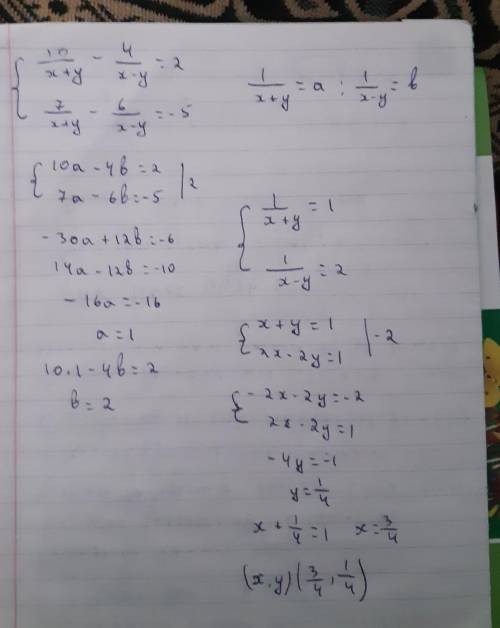 { 10/(x+y) - 4/(x-y) = 2
7/(x+y) - 6/(x-y) = -5
1/(x+y) = a ; 1/(x-y) = b
{ 10a - 4b = 2
7a - 6b = -5 | 2
-30a + 12b = -6
14a - 12b = -10
-16a = -16
a = 1
10·1 - 4b = 2
b = 2
{ 1/(x+y) = 1
1/(x-y) = 2
{ x + y = 1
2x - 2y = 1 | -2
{ -2x - 2y = -2
2x - 2y = 1
-4y = -1
y = 1/4
x + 1/4 = 1 x = 3/4
(x,y) (3/4, 1/4)